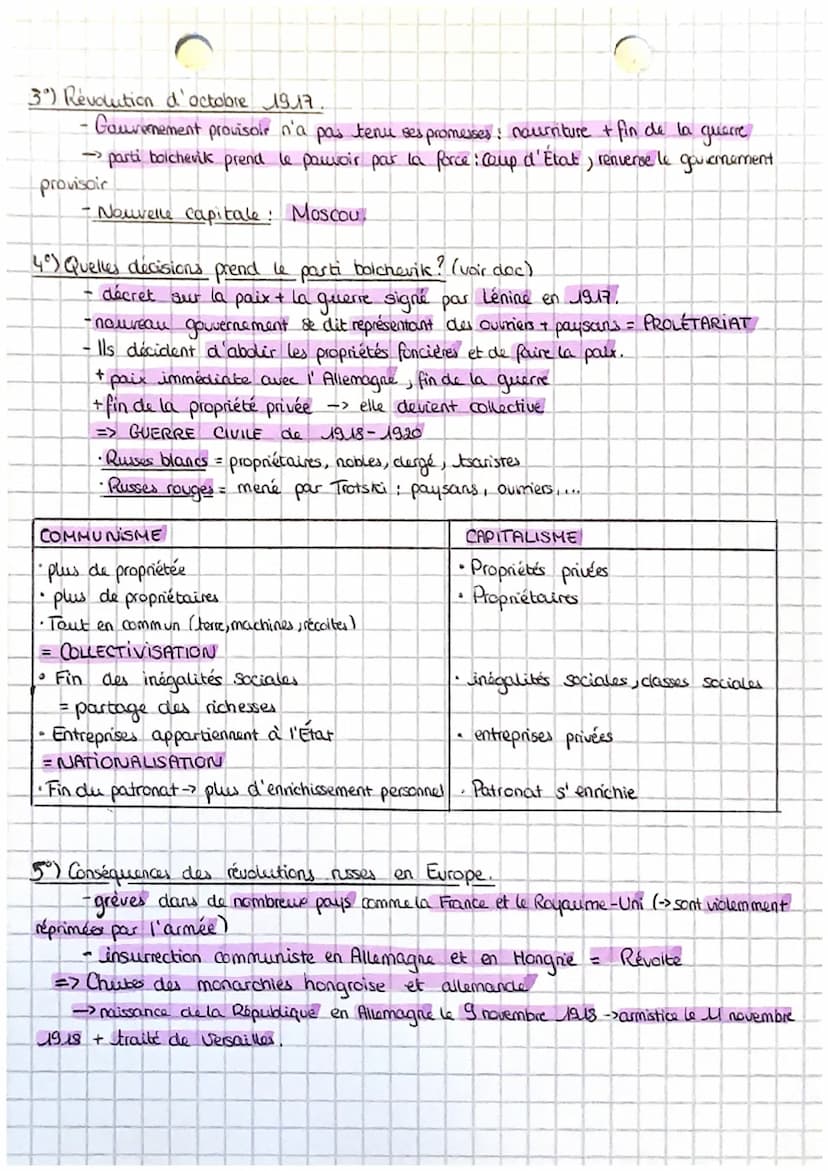 3°) Révolution d'octobre 1917.
- Gouvernement provisoir n'a pas tenu ses promesses : nourriture + fin de la guerre
-> parti bolchevik prend le pouvoir par la force : Coup d'État, renverse le gouvernement
provisoir.
- Nouvelle capitale : Moscou.
4°) Quelles décisions prend le parti bolchevik ? (voir doc)
- décret sur la paix + la guerre signé par Lénine en 1917.
- nouveau gouvernement se dit représentant des ouvriers + paysans = PROLÉTARIAT
- Ils décident d'abolir les propriétés foncières et de faire la paix.
+ paix immédiate avec l'Allemagne, fin de la guerre
+ fin de la propriété privée -> elle devient collective
=> GUERRE CIVILE de 1918-1920
· Russes blancs = propriétaires, nobles, clergé, tsaristes
· Russes rouges = mené par Trotski : paysans, ouvriers, ...
COMMUNISME CAPITALISME
· plus de propriétée · Propriétés privées
· plus de propriétaires · Propriétaires
· Tout en commun (terre, machines, récoltes)
= COLLECTIVISATION
· Fin des inégalités sociales · inégalités sociales, classes sociales
= partage des richesses
· Entreprises appartiennent à l'État · entreprises privées
= NATIONALISATION
· Fin du patronat -> plus d'enrichissement personnel · Patronat s'enrichie
5°) Conséquences des révolutions russes en Europe.
- grèves dans de nombreux pays comme la France et le Royaume-Uni (-> sont violemment
réprimées par l'armée)
- insurrection communiste en Allemagne et en Hongrie = Révolte
=> Chutes des monarchies hongroise et allemande
-> naissance de la République en Allemagne le 9 novembre 1918 -> armistice le 11 novembre
1918 + traité de Versailles.